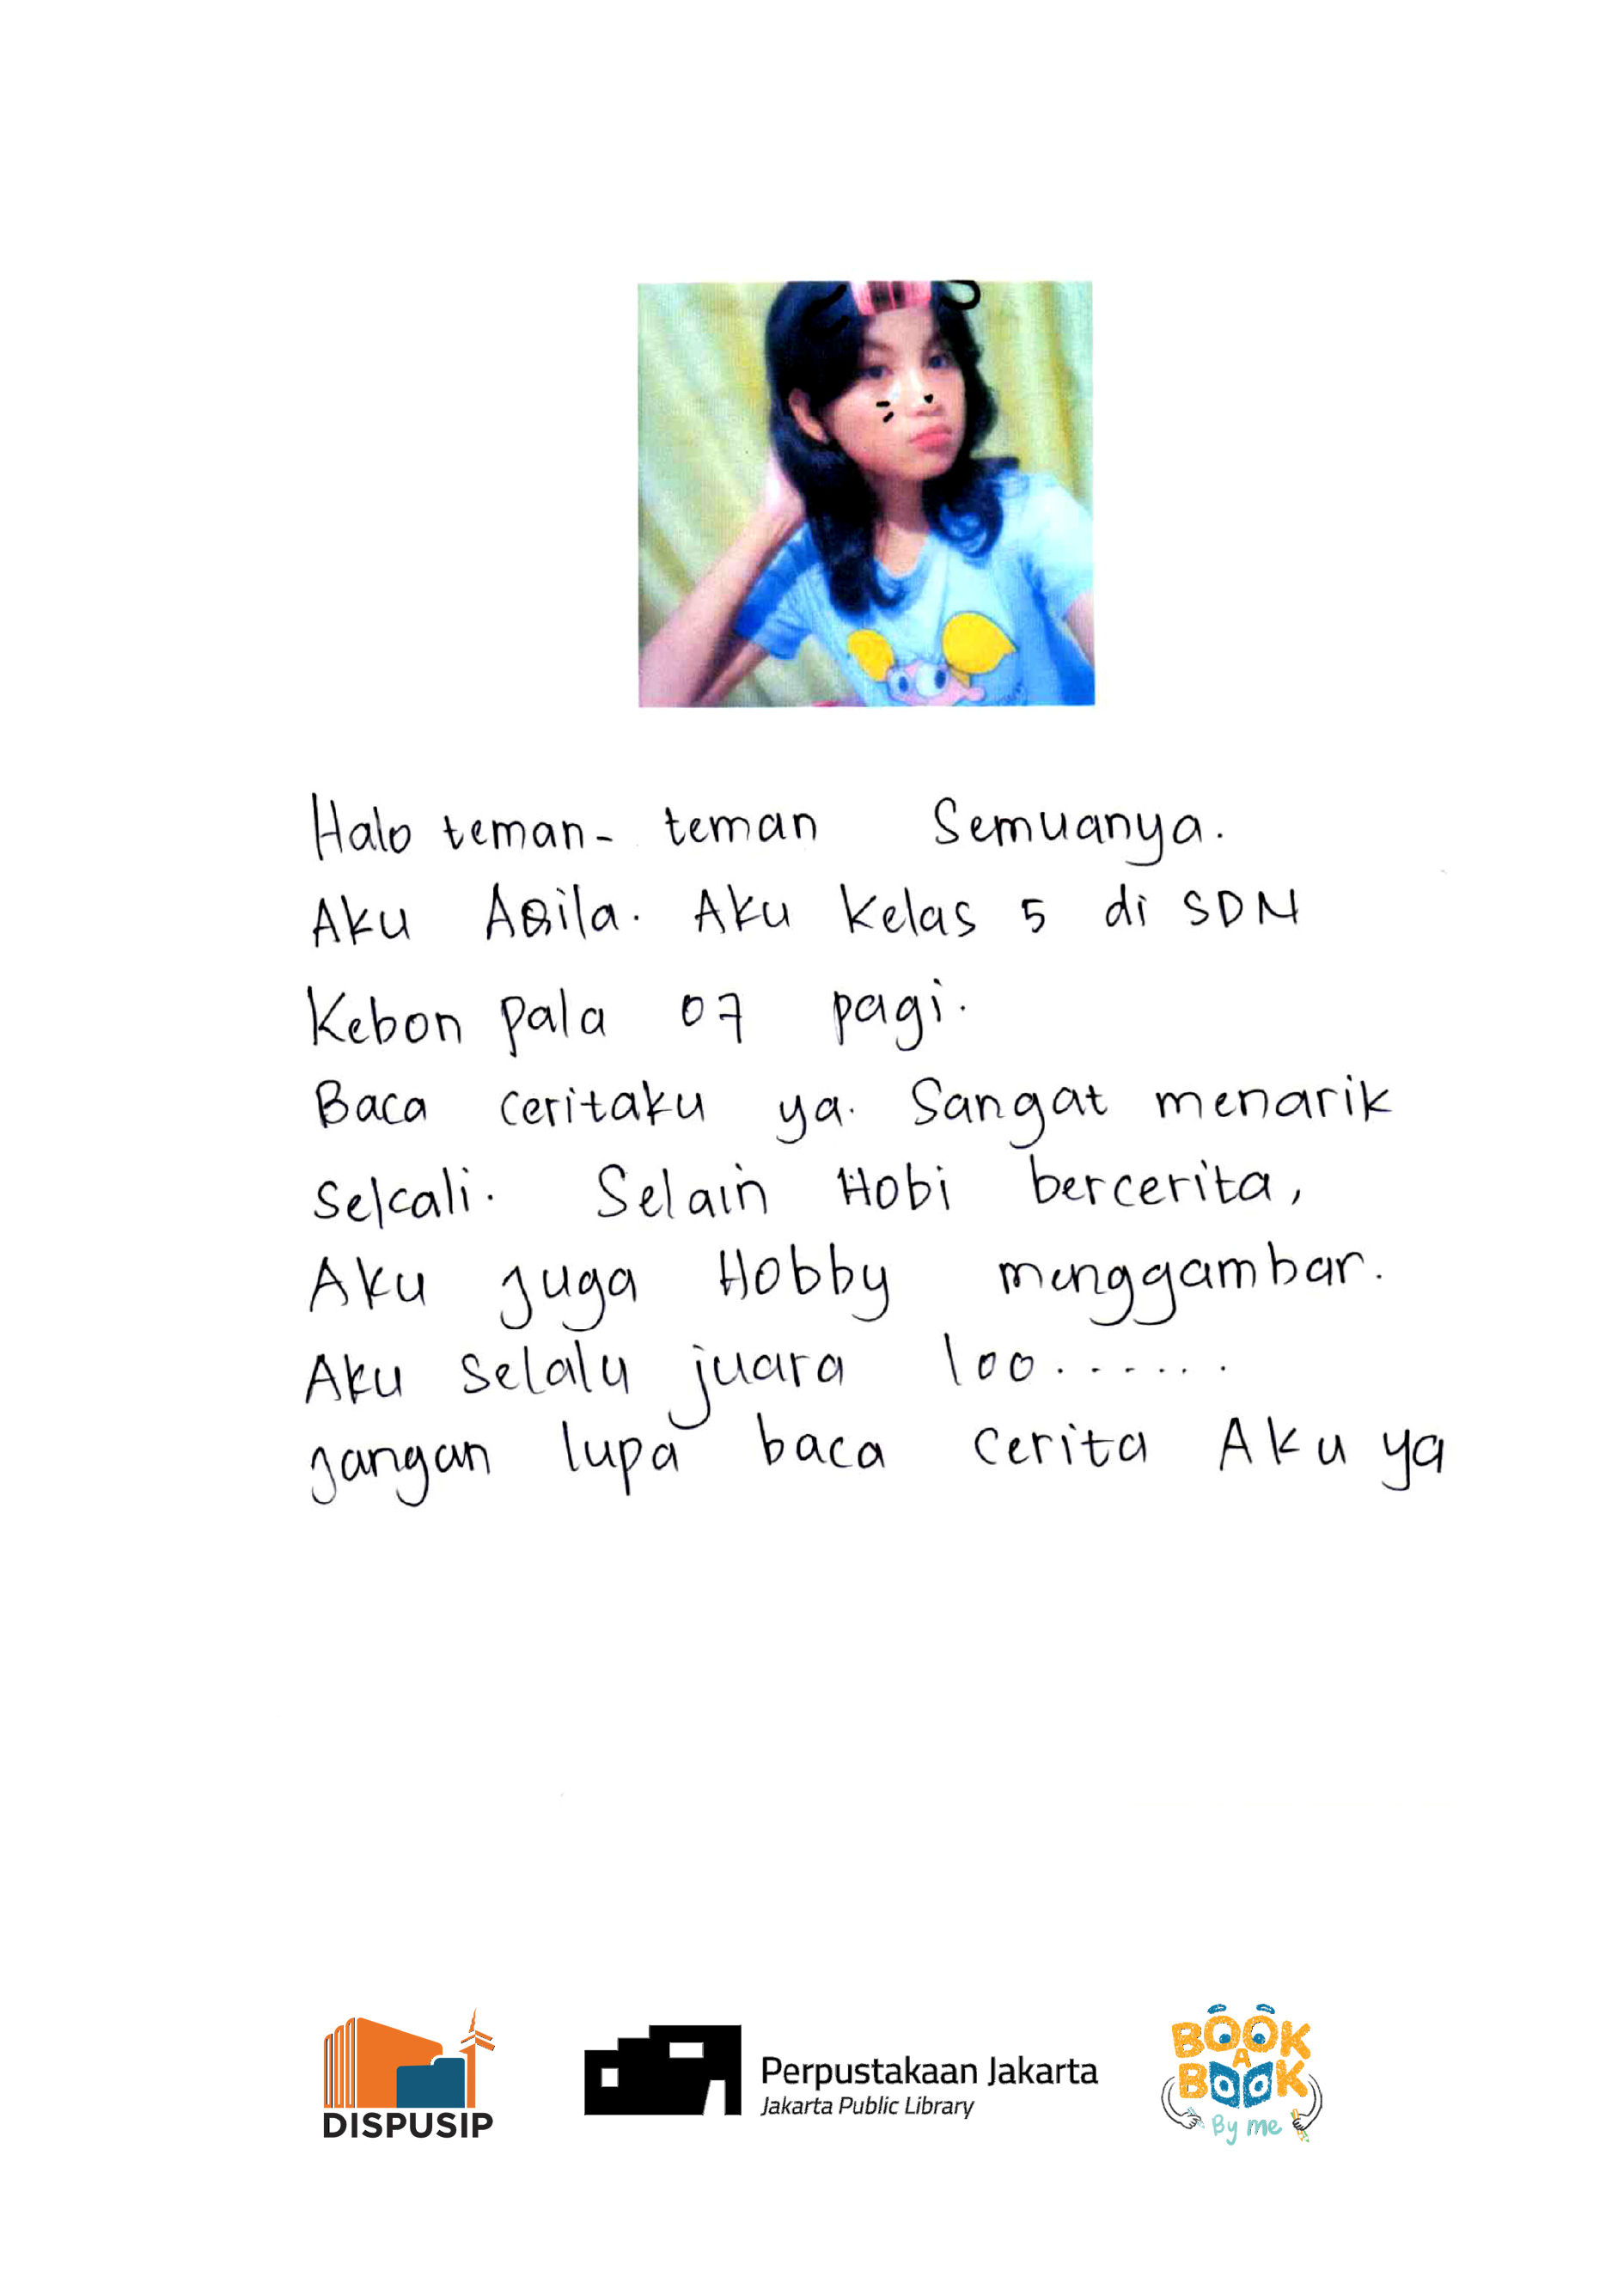 Halo teman-teman Semuanya.
Aku Aqila. Aku Kelas 5 di SDN
Kebon pala 07 pagi.
Baca ceritaku ya. Sangat menarik
Sekali. Selain Hobi bercerita,
Aku juga Hobby menggambar.
Aku Selalu juara loo.......
jangan lupa baca cerita Aku ya
DISPUSIP
Perpustakaan Jakarta
Jakarta Public Library
BOOK
A
BOOK
By me